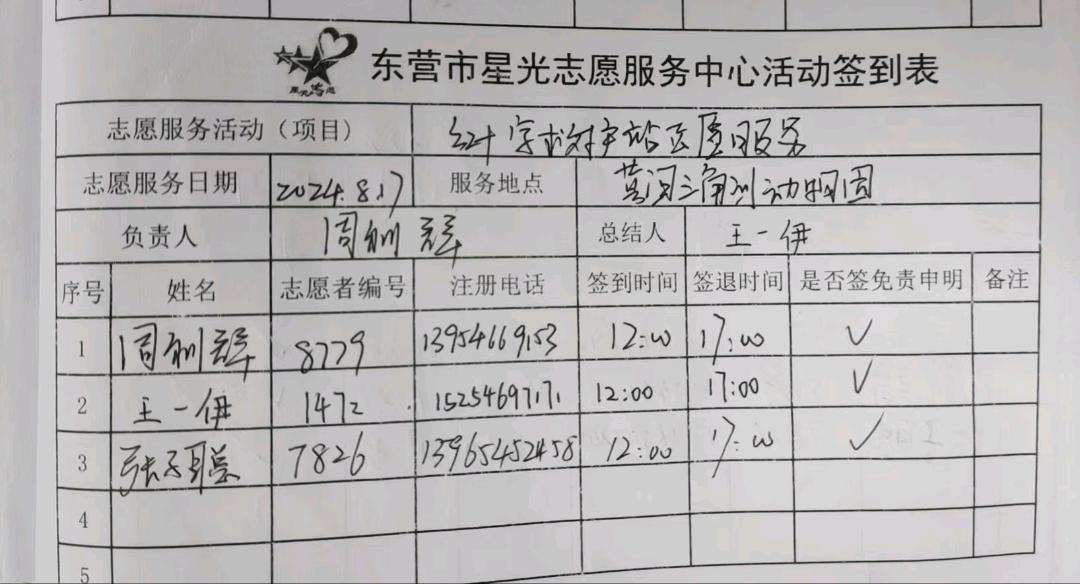 东营市星光志愿服务中心活动签到表
志愿服务活动（项目） 红十字救护站志愿服务
志愿服务日期 2024.8.17 服务地点 黄河三角洲动物园
负责人 周 总结人 王一伊
序号 姓名 志愿者编号 注册电话 签到时间 签退时间 是否签免责申明 备注
1 周 8779 13954669153 12:00 17:00 ✓
2 王一伊 1472 15254697171 12:00 17:00 ✓
3 张子聪 7826 13965452458 12:00 17:00 ✓
4
5